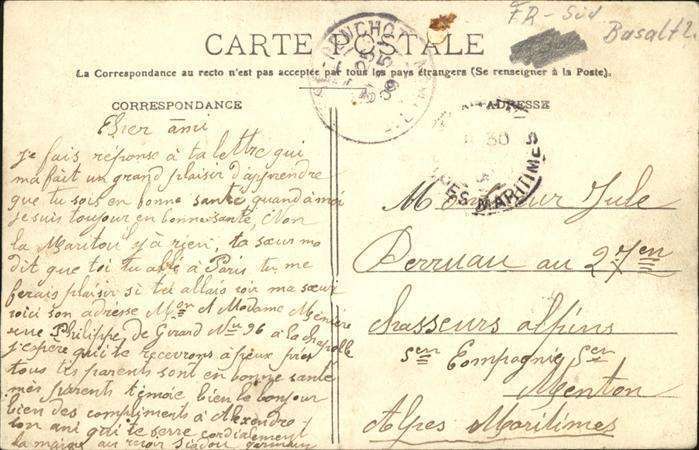 FR - Sud
Basalt
CARTE POSTALE
La Correspondance au recto n'est pas acceptée par tous les pays étrangers (Se renseigner à la Poste).
CORRESPONDANCE
ADRESSE
Cher ami
je fais réponse à ta lettre qui
ma fait un grand plaisir d'apprendre
que tu sois en bonne santé quand à moi
je suis toujour en bonne santé, Non
la y à rien, ta sœur ma
dit que toi tu allé à Paris tu me
ferais plaisir si tu allais voir ma sœur
voici son adresse Mor et Madame
rue Philippe de Girard No 96 à la chapelle
j'espère qui te recevrons à
tous tes parents sont en bonne santé
mes parents bien le bonjour
bien des compliments à Alexandre
ton ami qui te serre cordialement
la main au revoir
Monsieur Jule
Perruau au 27en
chasseurs alpins
5en Compagnie
Menton
Alpes Maritimes
30
MARITIMES